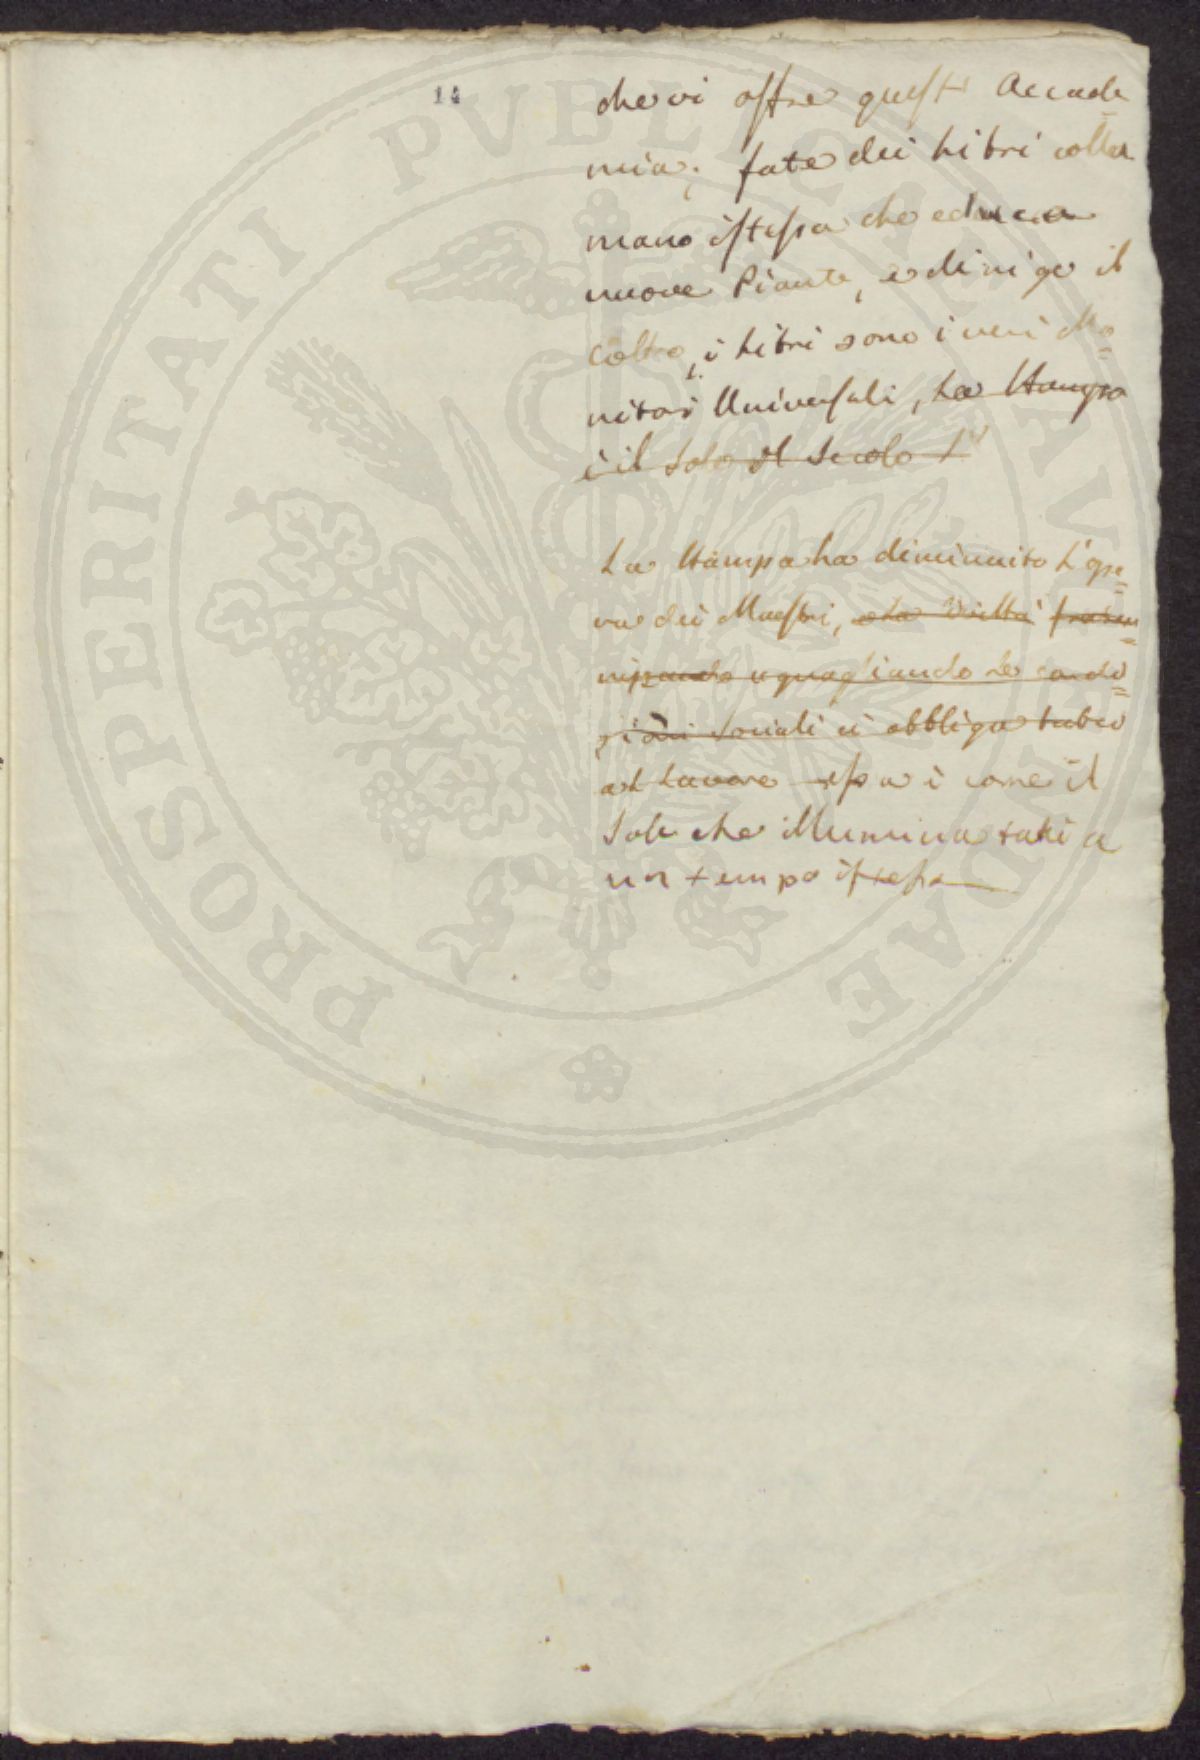 14
che vi offre quest' Accade
mia; fate dei Libri colla
mano istessa che educa
nuove Piante, e dirige il
Coltro, i Libri sono i veri Mo=
nitori Universali, La Stampa
è il Sole del Secolo
La Stampa ha diminuito L'ope=
ra dei Maestri, e La
uguagliando Le condi=
zioni Sociali ci obbliga tutti
al Lavoro essa è come il
Sole che illumina tutti a
un tempo istesso
PROSPERITATI PVBLICAE AVGENDAE